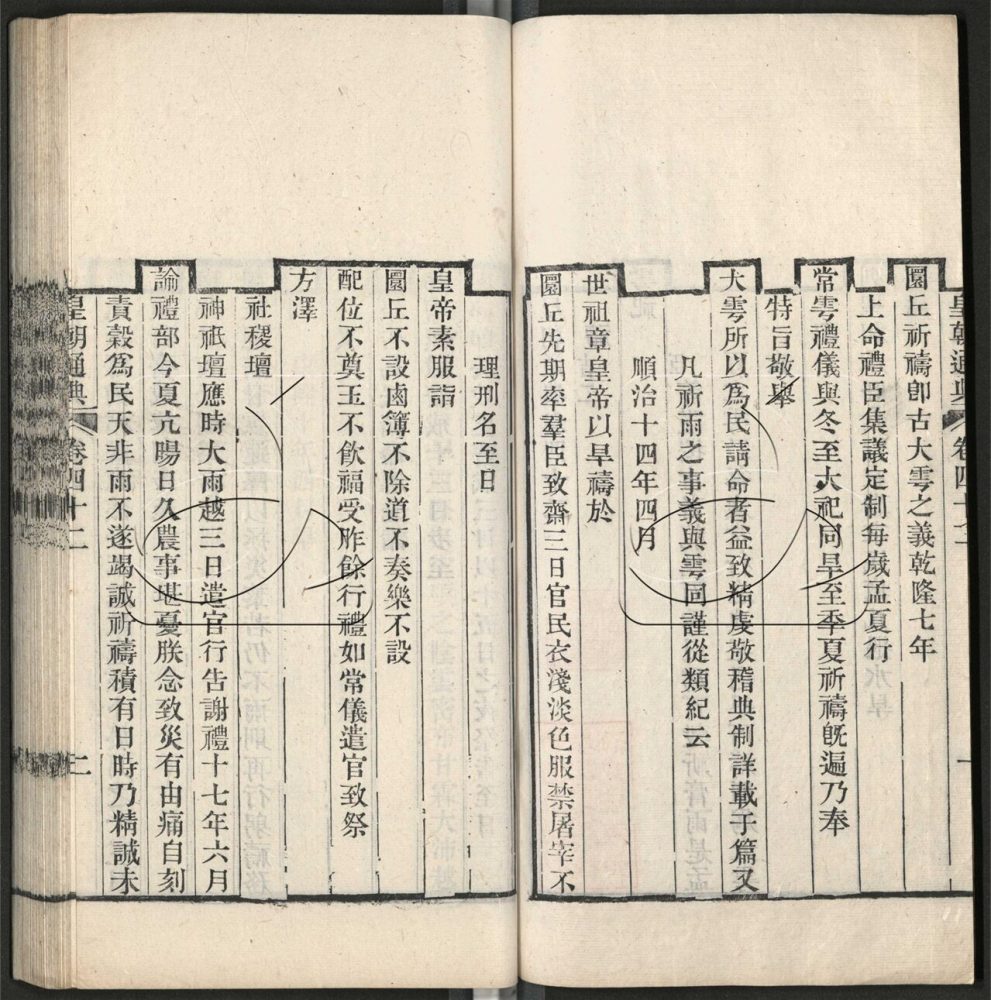 皇朝通典 卷四十二 一
圜丘祈禱卽古大雩之義乾隆七年
上命禮臣集議定制每歲孟夏行
常雩禮儀與冬至大祀同旱至季夏祈禱旣遍乃奉
特旨敬舉
大雩所以爲民請命者益致精虔敬稽典制詳載于篇又
凡祈雨之事義與雩同謹從類紀云
順治十四年四月
世祖章皇帝以旱禱於
圜丘先期率羣臣致齋三日官民衣淺淡色服禁屠宰不
理刑名至日
皇帝素服詣
圜丘不設鹵簿不除道不奏樂不設
配位不奠玉不飮福受胙餘行禮如常儀遣官致祭
方澤
社稷壇
神祇壇應時大雨越三日遣官行告謝禮十七年六月
諭禮部今夏亢暘日久農事堪憂朕念致災有由痛自刻
責穀爲民天非雨不遂竭誠祈禱積有日時乃精誠未
皇朝通典 卷四十二 二